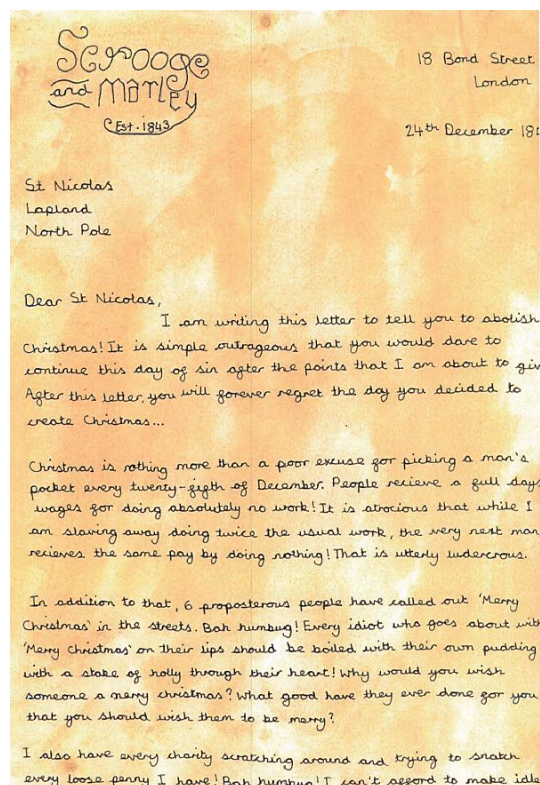 Scrooge
and Marley
Est. 1843
18 Bond Street
London
24th December
St Nicolas
Lapland
North Pole
Dear St Nicolas,
I am writing this letter to tell you to abolish
Christmas! It is simple outrageous that you would dare to
continue this day of sin after the points that I am about to
After this letter, you will forever regret the day you decided to
create Christmas...
Christmas is nothing more than a poor excuse for picking a man's
pocket every twenty-fifth of December. People recieve a full days
wages for doing absolutely no work! It is atrocious that while I
am slaving away doing twice the usual work, the very next man
recieves the same pay by doing nothing! That is utterly ludercrous.
In addition to that, 6 proposterous people have called out 'Merry
Christmas' in the streets. Bah humbug! Every idiot who goes about with
'Merry Christmas' on their lips should be boiled with their own pudding
with a stake of holly through their heart! Why would you wish
someone a merry christmas? What good have they ever done for you
that you should wish them to be merry?
I also have every charity scratching around and trying to snatch
every loose penny I have! Bah humbug! I can't afford to make idle